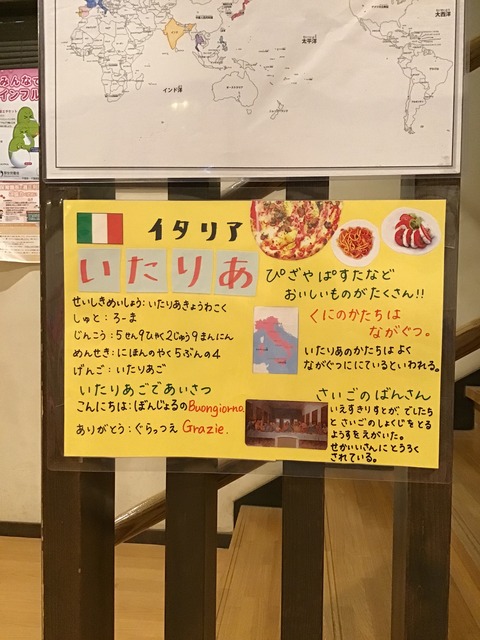 大西洋
太平洋
インド洋
オーストラリア
みんなで
インフル
イタリア
いたりあ
ぴざやぱすたなど
おいしいものがたくさん!!
せいしきめいしょう:いたりあきょうわこく
しゅと:ろーま
じんこう:5せん9ひゃく2じゅう9まんにん
めんせき:にほんのやく5ぶんの4
げんご:いたりあご
くにのかたちは
ながぐつ。
いたりあのかたちはよく
ながぐつににているといわれる。
いたりあごであいさつ
こんにちは:ぼんじょるの Buongiorno.
ありがとう:ぐらっつえ Grazie.
さいごのばんさん
いえすきりすとが、でしたち
とさいごのしょくじをとる
ようすをえがいた。
せかいいさんにとうろく
されている。